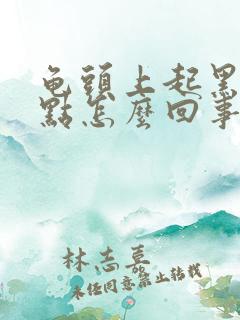 龟頭上起黑
點怎麼回事
林志墓
未经同意禁止转载